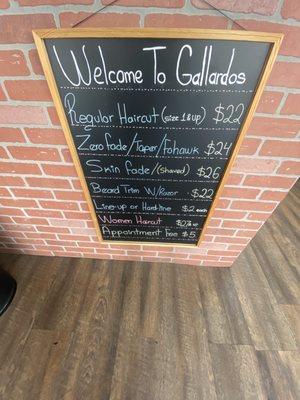 Welcome To Gallardos
Regular Haircut (size 1 & up) $22
Zero fade/Taper/Fohawk $24
Skin Fade/(shaved) $26
Beard Trim W/razor $22
Line-up or Hard-line $2 each
Women Haircut & up
Appointment Fee $5